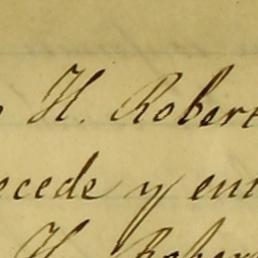 H. Robert
ecede y en
H. Rober